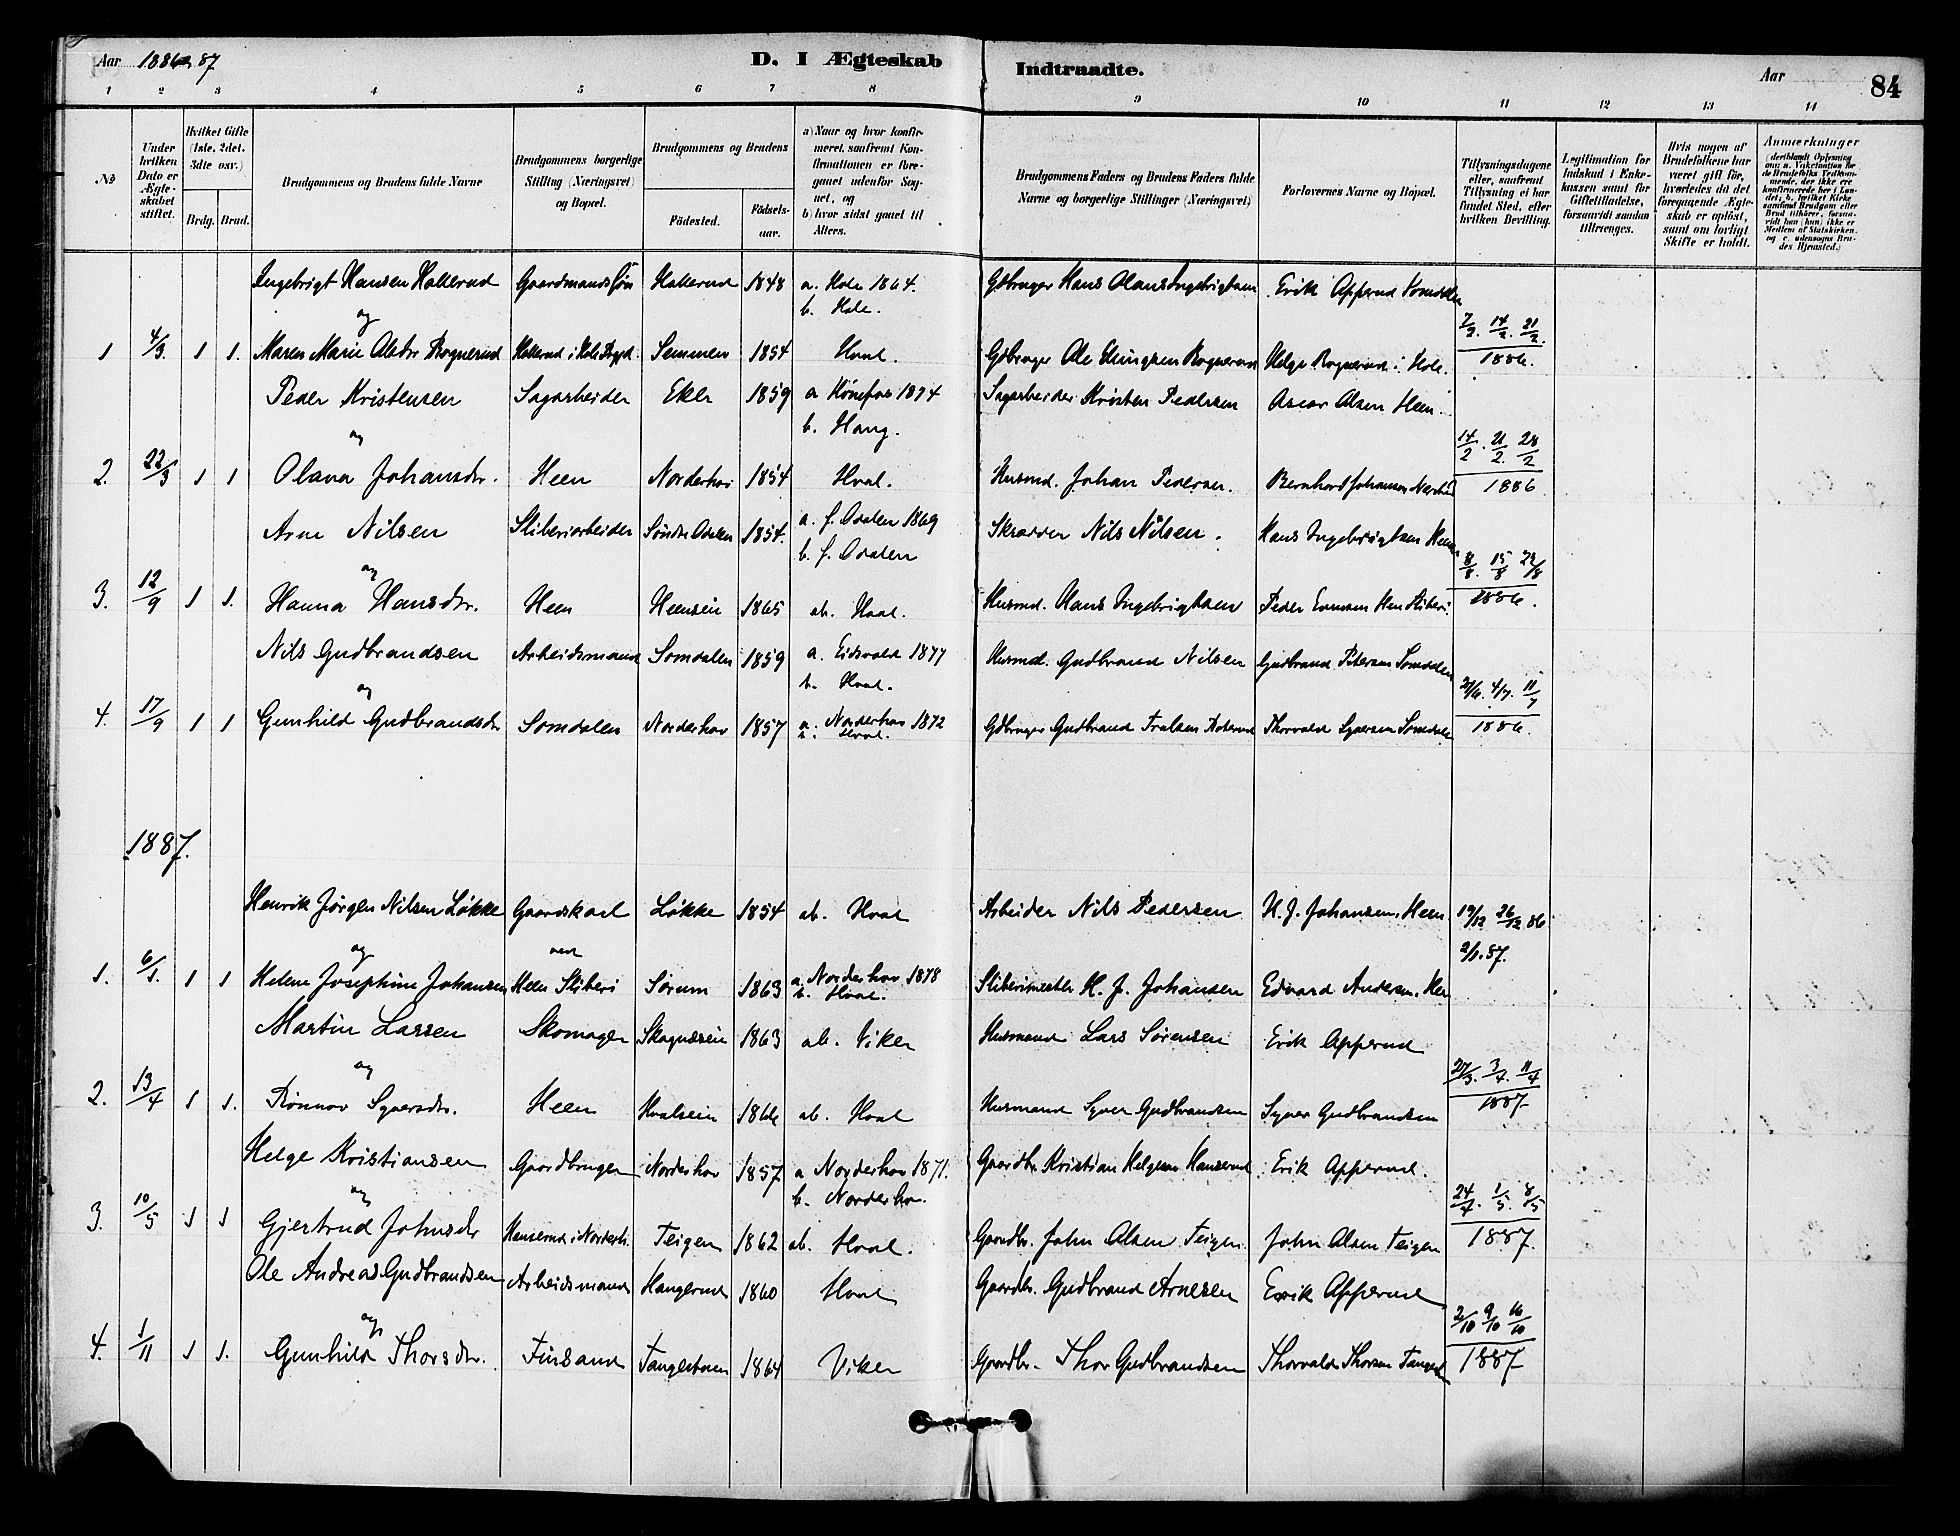 Aar 1886 87
D. I Ægteskab Indtraadte.
Aar
84
1 2 3 4 5 6 7 8 9 10 11 12 13 14
No
Under hvilken Dato er Ægteskabet stiftet.
Hvilket Gifte (1ste, 2det, 3die osv.)
Brdg. Brud.
Brudgommens og Brudens fulde Navne
Brudgommens borgerlige Stilling (Næringsvei) og Bopæl.
Brudgommens og Brudens
Fødested. Fødsels-aar.
a) Naar og hvor konfirmeret, saafremt Konfirmationen er foregaaet udenfor Sognet, og
b) hvor sidst gaaet til Alters.
Brudgommens Faders og Brudens Faders fulde Navne og borgerlige Stillinger (Næringsvei)
Forlovernes Navne og Bopæl.
Tillysningsdagene eller, saafremt Tillysning ei har fundet Sted, efter hvilken Bevilling.
Legitimation for Indskud i Enkekassen samt for Giftetilladelse, forsaavidt saadan tiltrænges.
Hvis nogen af Brudefolkene har været gift før, hvorledes da det foregaaende Ægteskab er opløst, samt om lovligt Skifte er holdt.
Anmærkninger
Ingebrigt Hansen Hallerud Gaardmandssøn Hallerud 1848 a. Hole 1864. Gdbruger Hans Olans Ingebrigtsen Erik Apperud Somdalen
og b. Hole. 7/2. 14/2. 21/2.
1 4/3. 1 1. Maren Marie Olsdr. Rognerud Hallerud i Hole Prgd. Semmen 1854 Hval. Gdbruger Ole Rognerud Helge Rognerud i Hole. 1886.
Peder Kristensen Sagarbeider Eker 1859 a Hønefos 1874 Sagarbeider Kristen Pedersen Oscar Olsen Heen.
og b. Haug. 14/2. 21/2. 28/2
2. 22/3 1 1 Olava Johansdr. Heen Norderhov 1854 Hval. Husmd. Johan Pedersen. Bernhard Johansen 1886
Arne Nilsen Sliberiarbeider Søndre Odalen 1854. a. S. Odalen 1869 Skrædder Nils Nilsen. Hans Ingebrigtsen Heen
og b. S. Odalen 8/8. 15/8 22/8
3. 12/9 1 1. Hanna Hansdr. Heen Heenseie 1865 ab. Hval. Husmd. Hans Ingebrigtsen Peder Evensen Hen Sliberi. 1886.
Nils Gudbrandsen Arbeidsmand Somdalen 1859 a. Eidsvold 1877 Husmd. Gudbrand Nilsen Gudbrand Petersen Somdalen
og b. Hval. 27/6. 4/7. 11/7
4. 17/9 1 1 Gunhild Gudbrandsdr Somdalen Norderhov 1857 a. Norderhov 1872 b. Hval. Gdbruger Gudbrand Thorvald Syversen Somdalen 1886.
1887.
Henrik Jørgen Nilsen Løkke Gaardskarl Løkke 1854 ab. Hval Arbeider Nils Pedersen H. J. Johansen, Heen 19/12 26/12 86
og ved 2/1.87.
1. 6/1. 1 1 Helene Josephine Johansen Heen Sliberi Sørum 1863 a. Norderhov 1878 b. Hval. Slibrimester H. J. Johansen Edvard Andersen, Hen
Martin Larsen Skomager Skagnæseie 1863 ab. Viker Husmand Lars Sørensen Erik Apperud
og 27/3. 3/4. 11/4
2. 13/4 1 1. Rønnov Syversdr. Heen Hvalseie 1866 ab. Hval Husmand Syver Gudbrandsen Syver Gudbrandsen 1887.
Helge Kristiansen Gaardbruger Norderhov 1857 a Norderhov 1871. Gaardbr. Kristian Helgesen Hanserud Erik Apperud.
og b. Norderhov. 24/4. 1/5. 8/5
3. 10/5 1 1 Gjertrud Johnsdr Hanserud i Norderh. Teigen 1862 ab. Hval. Gaardbr. John Olsen Teigen John Olsen Teigen 1887.
Ole Andreas Gudbrandsen Arbeidsmand Haugerud 1860 Hval Gaardbr. Gudbrand Arnesen Erik Apperud
og 2/10 9/10 16/10
4. 1/11 1 1. Gunhild Thorsdr. Finsand 1864 Viker Gaardbr. Thor Gudbrandsen Thorvald Thorsen 1887